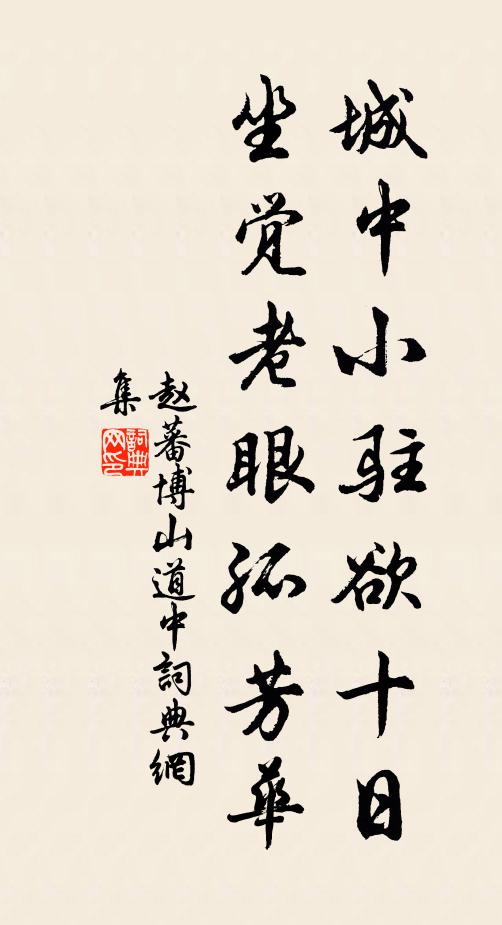 城中小驻欲十日
坐觉老眼孤芳華
赵蕃博山道中詞典網
集
詞典
网印